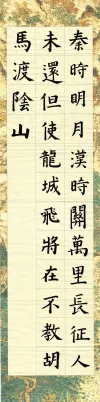 秦時明月漢時關萬里長征人
未還但使龍城飛將在不教胡
馬渡陰山